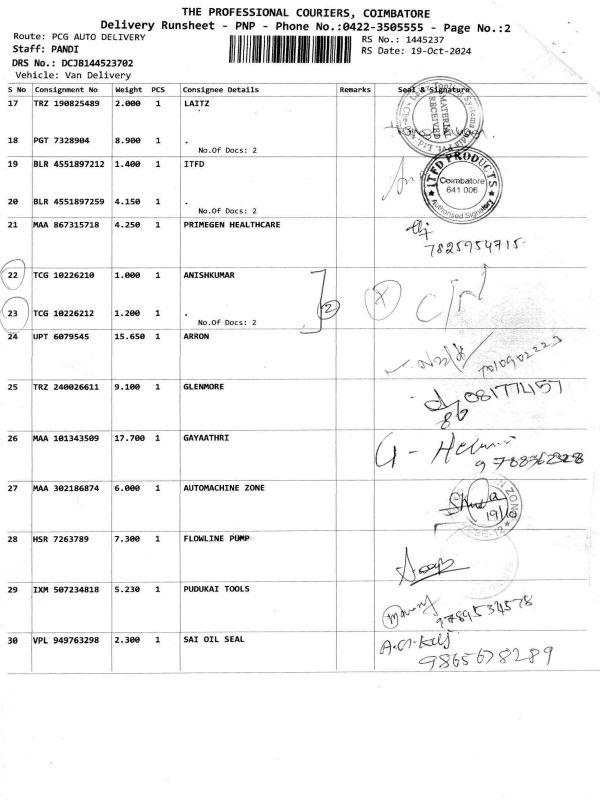 THE PROFESSIONAL COURIERS, COIMBATORE
Delivery Runsheet - PNP - Phone No.:0422-3505555 - Page No.:2
Route: PCG AUTO DELIVERY
RS No.: 1445237
Staff: PANDI
RS Date: 19-Oct-2024
DRS No.: DCJB144523702
Vehicle: Van Delivery
S No Consignment No Weight PCS Consignee Details Remarks Seal & Signature
17 TRZ 190825489 2.000 1 LAITZ
MATERIAL RECEIVED
18 PGT 7328904 8.900 1 .
No.Of Docs: 2
19 BLR 4551897212 1.400 1 ITFD
ITFD PRODUCTS
Coimbatore
641 006
Authorised Signatory
20 BLR 4551897259 4.150 1 .
No.Of Docs: 2
21 MAA 867315718 4.250 1 PRIMEGEN HEALTHCARE
7825954715
22 TCG 10226210 1.000 1 ANISHKUMAR
2
23 TCG 10226212 1.200 1 .
No.Of Docs: 2
24 UPT 6079545 15.650 1 ARRON
25 TRZ 240026611 9.100 1 GLENMORE
86
26 MAA 101343509 17.700 1 GAYAATHRI
27 MAA 302186874 6.000 1 AUTOMACHINE ZONE
19/10
28 HSR 7263789 7.300 1 FLOWLINE PUMP
29 IXM 507234818 5.230 1 PUDUKAI TOOLS
9789534578
30 VPL 949763298 2.300 1 SAI OIL SEAL
9865678289